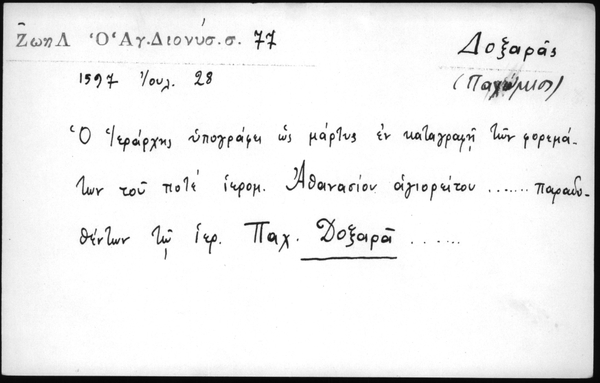 Ζωη Λ Ὁ Ἁγ. Διονύσ. σ. 77
Δοξαρᾶς
1597 Ἰουλ. 28
(Παχώμιος)
Ὁ Ἱεράρχης ὑπογράφει ὡς μάρτυς ἐν καταγραφῇ τῶν φορεμά-
των τοῦ ποτέ ἱερομ. Ἀθανασίου ἁγιορείτου ....... παραδο-
θέντων τῷ ἱερ. Παχ. Δοξαρᾶ ......